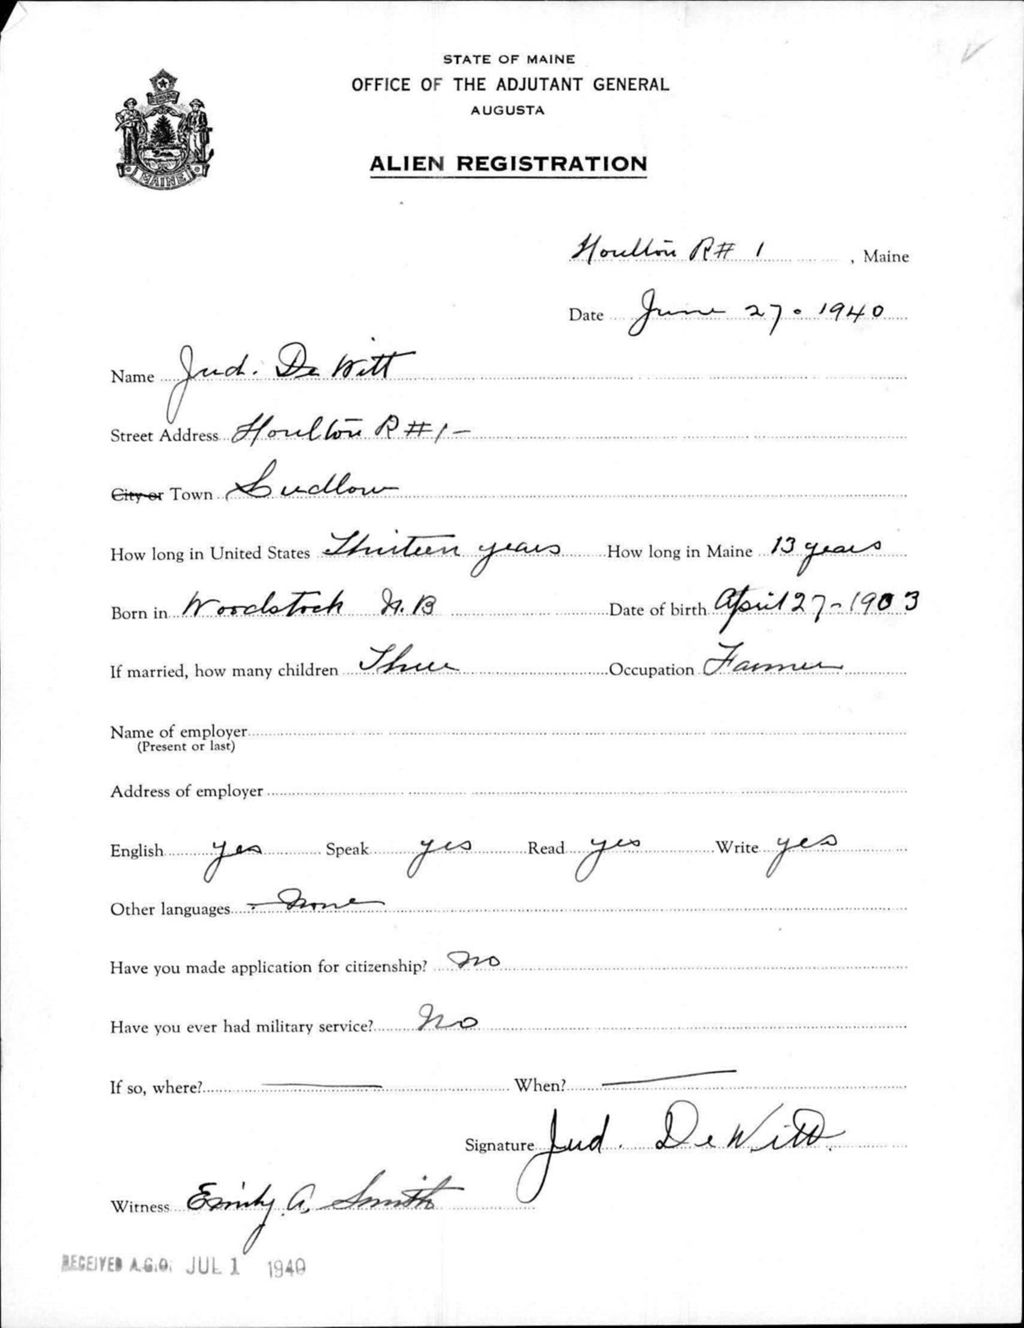 STATE OF MAINE
OFFICE OF THE ADJUTANT GENERAL
AUGUSTA
ALIEN REGISTRATION
MAINE
Houlton R# 1, Maine
Date June 27. 1940
Name Jud. De Witt
Street Address Houlton R#1-
City or Town Ludlow
How long in United States Thirteen years How long in Maine 13 years
Born in Woodstock N.B Date of birth April 27-1903
If married, how many children Three Occupation Farmer
Name of employer
(Present or last)
Address of employer
English yes Speak yes Read yes Write yes
Other languages - None
Have you made application for citizenship? No
Have you ever had military service? No
If so, where? When?
Signature Jud. De Witt.
Witness Emily A. Smith
RECEIVED A.G.O. JUL 1 1940